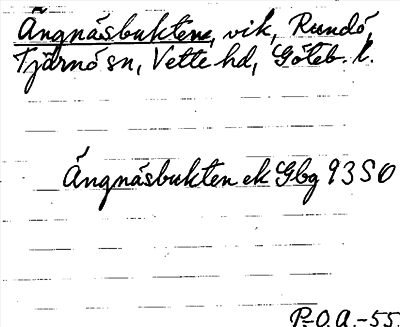 Ängnäsbukten, vik, Rundö,
Tjärnö sn, Vette hd, Göteb. l.
Ängnäsbukten ek Gbg 93 SO
P.-O.A.-55.